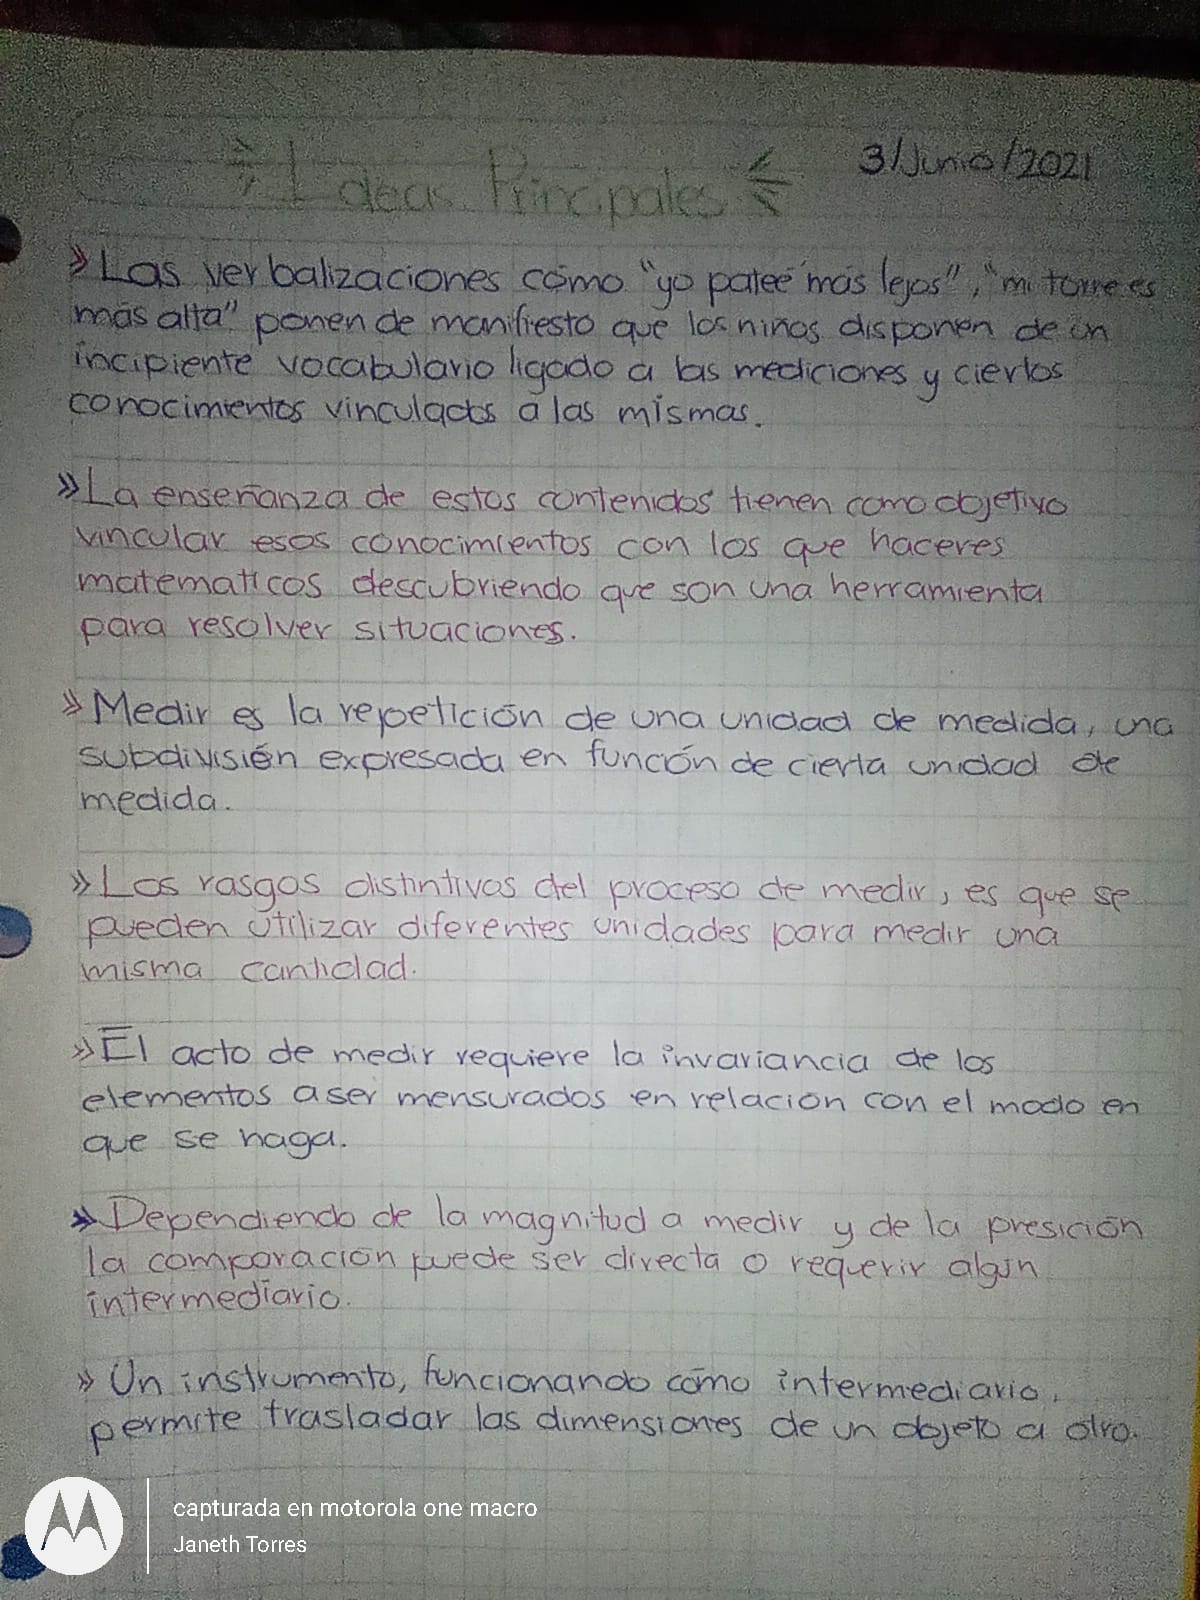 Ideas Principales
3/Junio/2021
» Las verbalizaciones cómo "yo pateé más lejos", "mi torre es
más alta" ponen de manifiesto que los niños disponen de un
incipiente vocabulario ligado a las mediciones y ciertos
conocimientos vinculados a las mismas.
» La enseñanza de estos contenidos tienen como objetivo
vincular esos conocimientos con los que haceres
matematicos descubriendo que son una herramienta
para resolver situaciones.
» Medir es la repetición de una unidad de medida, una
subdivisión expresada en función de cierta unidad de
medida.
» Los rasgos distintivos del proceso de medir, es que se
pueden utilizar diferentes unidades para medir una
misma cantidad.
» El acto de medir requiere la invariancia de los
elementos a ser mensurados en relación con el modo en
que se haga.
» Dependiendo de la magnitud a medir y de la presición
la comparación puede ser directa o requerir algún
intermediario.
» Un instrumento, funcionando cómo intermediario,
permite trasladar las dimensiones de un objeto a otro.
capturada en motorola one macro
Janeth Torres